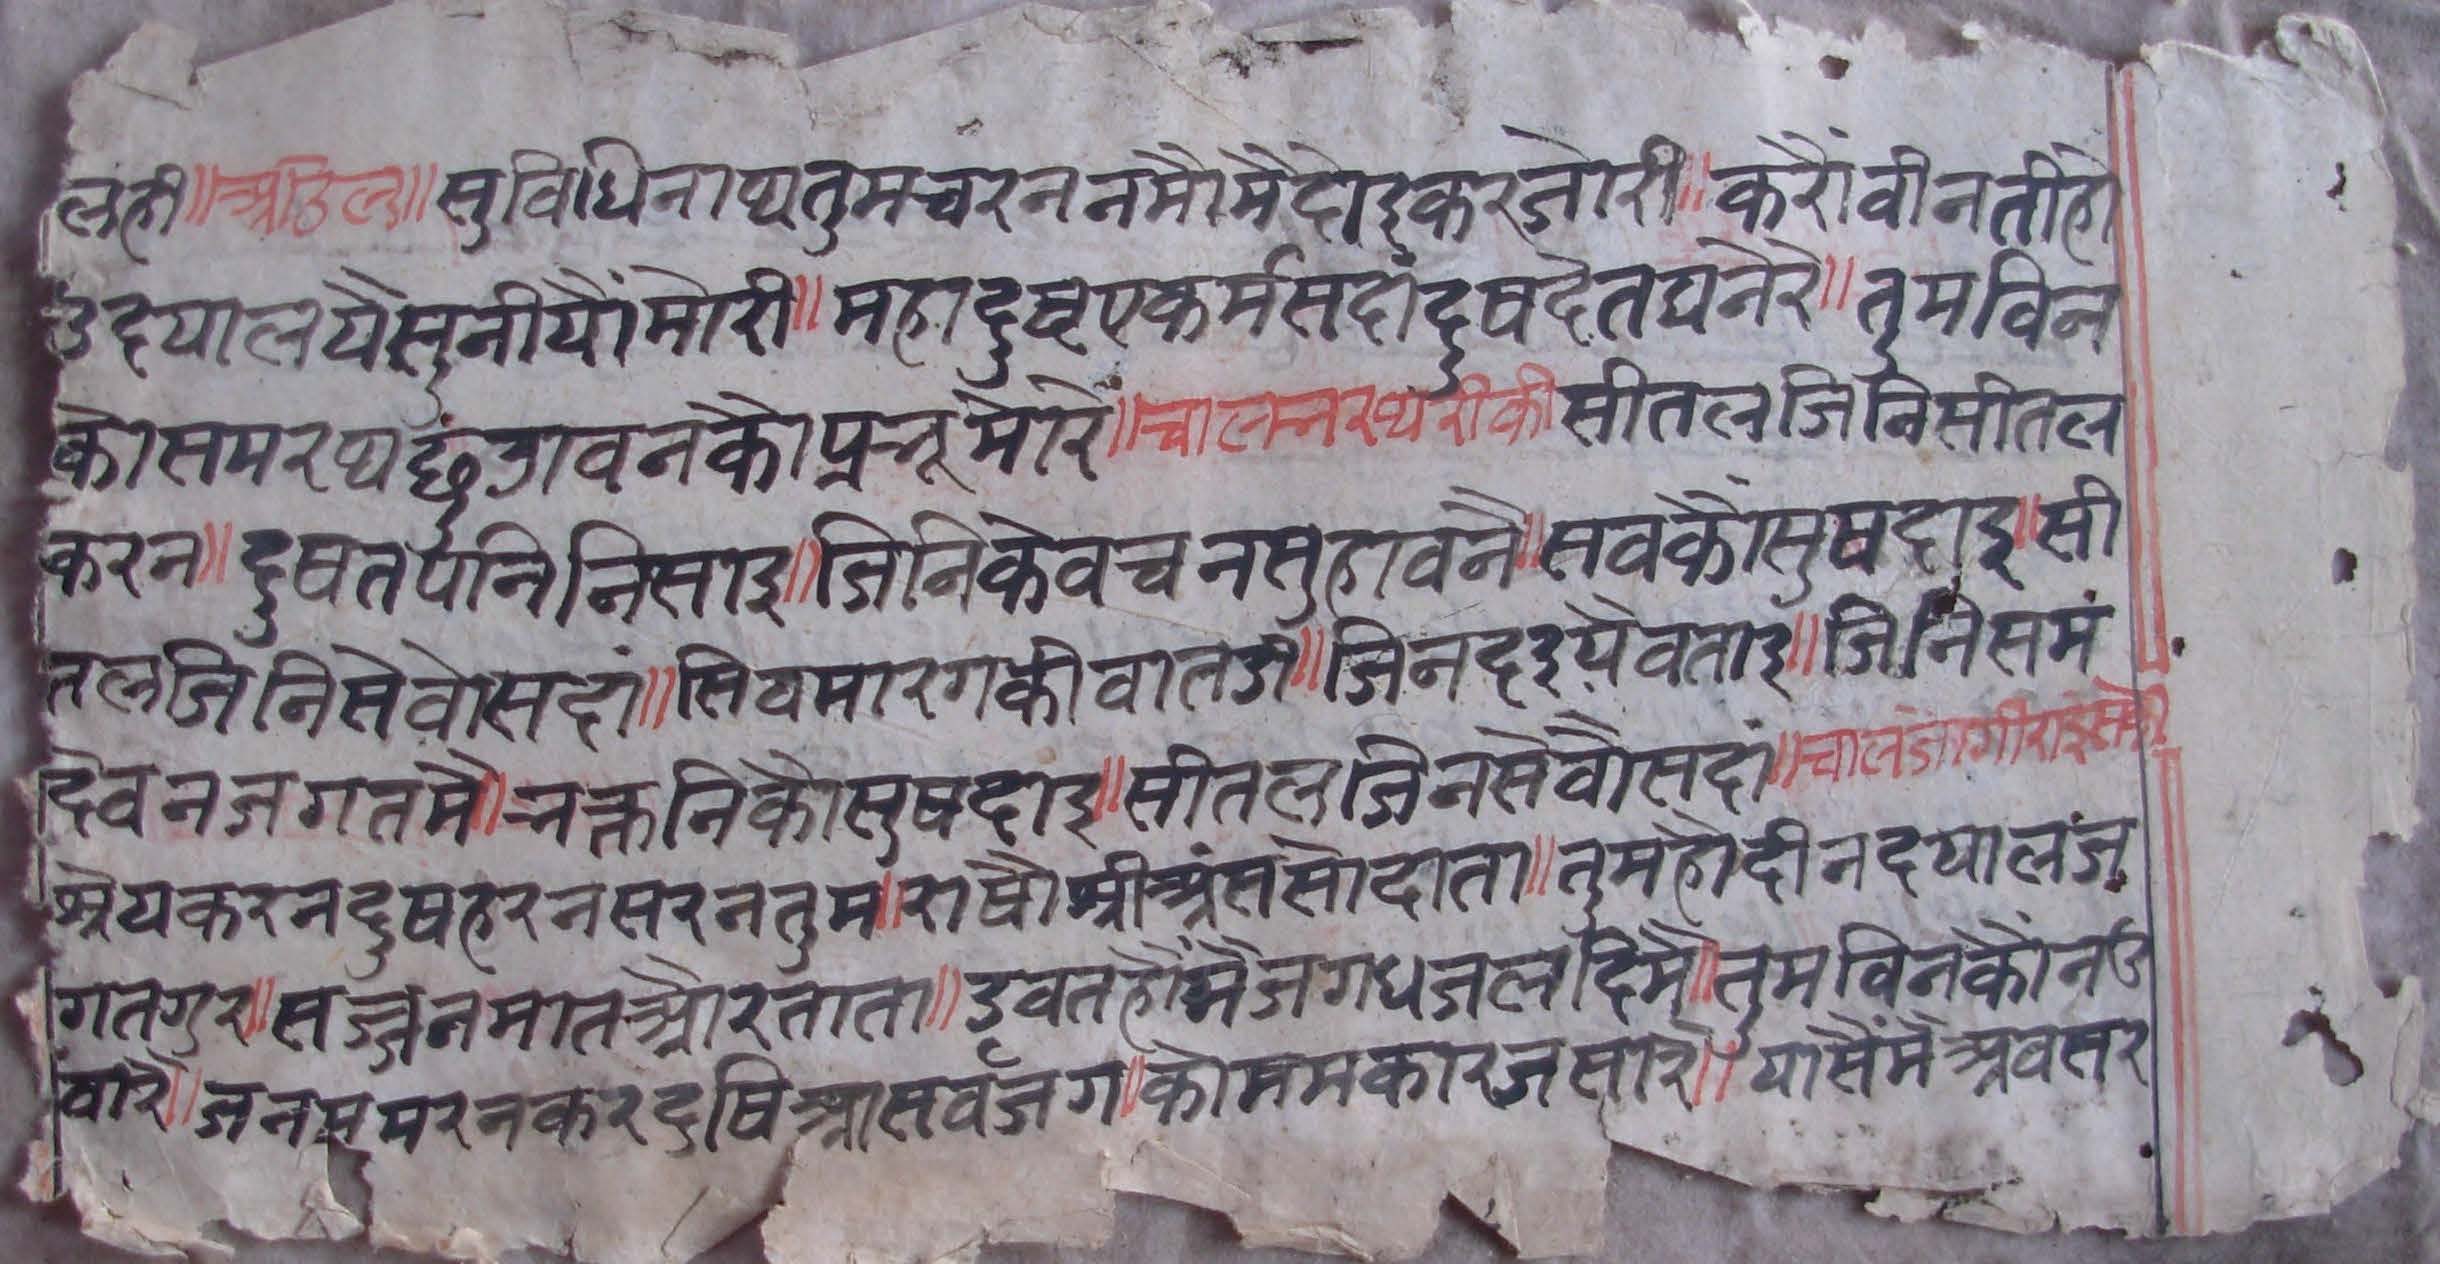 लही॥अडिल॥सुविधिनाथतुमचरननमौमैदोइकरजोरी॥करौंवीनतीहो
उदयालयैसुनीयौंमोरी॥महादुष्टएकर्मसदांदुषदेतघनेरे॥तुमविन
कोसमरथछुंडावनकौप्रभूमोरे॥चालभरथरीकीसीतलजिनिसीतल
करन॥दुषतपनिनिसाइ॥जिनिकेवचनसुहावनै॥सवकौंसुषदाइ॥सी
तलजिनिसेवोसदां॥सिवमारगकीवातजे॥जिनदइयैवताइ॥जिनिसमं
देवनजगतमै॥भक्तनिकौसुषदाइ॥सीतलजिनसेवौसदां॥चालजोगीरासेकी
श्रेयकरनदुषहरनसरनतुम॥राषौश्रीअंससोदाता॥तुमहोदीनदयालज
गतगुर॥सज्जनमातऔरताता॥डुवतहौंमैजगधजलदिमै॥तुमविनकौनउ
वारे॥जनममरनकरदुषिआसर्वजग॥कोममकारजसारे॥यासैंमेअवसर